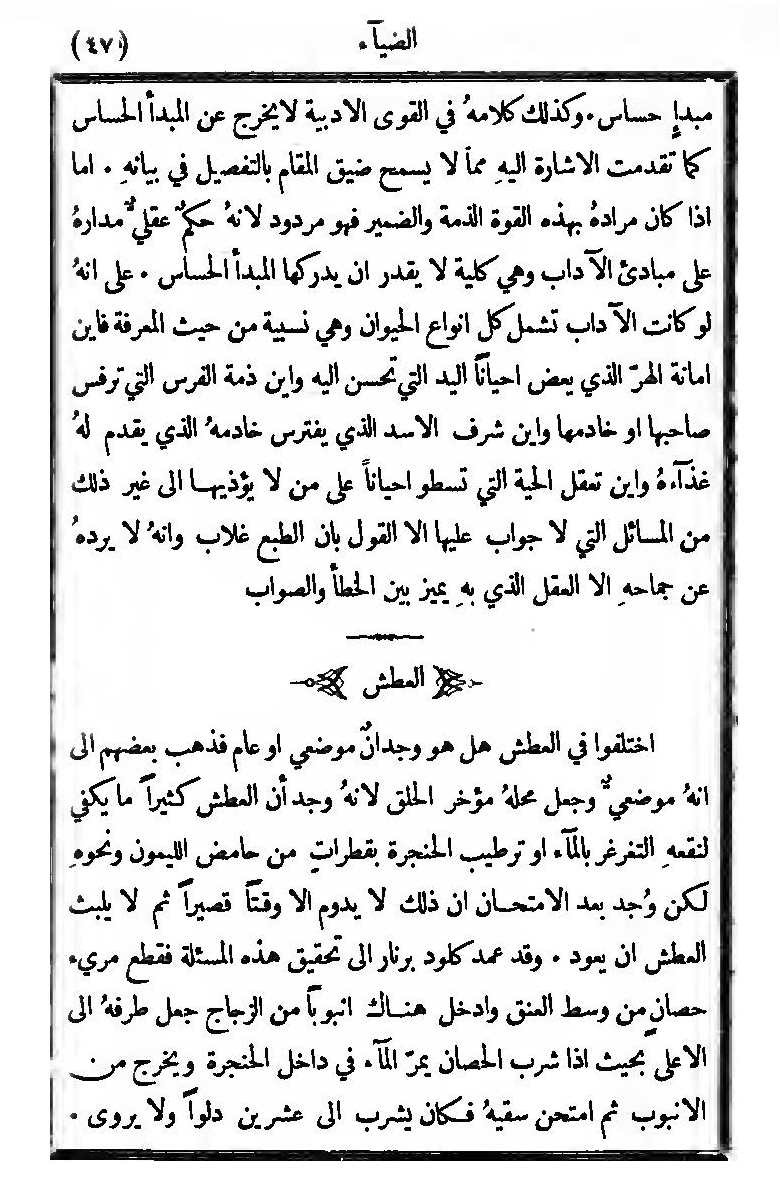 الضيآء
(٤٧١)
مبدإٍ حساس ٠ وكذلك كلامهُ في القوى الادبية لا يخرج عن المبدأ الحساس
كما تقدمت الاشارة اليهِ مماَ لا يسمح ضيق المقام بالتفصيل في بيانهِ ٠ اما
اذا كان مرادهُ بهذه القوة الذمة والضمير فهو مردود لانهُ حكمٌ عقليٌّ مدارهُ
على مبادئ الآداب وهي كلية لا يقدر ان يدركها المبدأ الحساس ٠ على انهُ
لو كانت الآداب تشمل كل انواع الحيوان وهي نسبية من حيث المعرفة فاين
امانة الهرّ الذي يعض احياناً اليد التي تحسن اليه واين ذمة الفرس التي ترفس
صاحبها او خادمها واين شرف الاسد الذي يفترس خادمهُ الذي يقدم لهُ
غذآءهُ واين تعقل الحية التي تسطو احياناً على من لا يؤذيهـا الى غير ذلك
من المسائل التي لا جواب عليها الا القول بان الطبع غلاب وانهُ لا يردهُ
عن جماحهِ الا العقل الذي بهِ يميز بين الخطأ والصواب
العطش
اختلفوا في العطش هل هو وجدانٌ موضعي او عام فذهب بعضهم الى
انهُ موضعيٌّ وجعل محلهُ مؤخر الحلق لانهُ وجد أن العطش كثيراً ما يكفي
لنقعهِ التغرغر بالمآء او ترطيب الحنجرة بقطراتٍ من حامض الليمون ونحوهِ
لكن وُجد بعد الامتحـان ان ذلك لا يدوم الا وقتاً قصيراً ثم لا يلبث
العطش ان يعود ٠ وقد عمد كلود برنار الى تحقيق هذه المسئلة فقطع مريء
حصانٍ من وسط العنق وادخل هنـاك انبوباً من الزجاج جعل طرفهُ الى
الاعلى بحيث اذا شرب الحصان يمرّ المآء في داخل الحنجرة ويخرج من
الانبوب ثم امتحن سقيهُ فكان يشرب الى عشرين دلواً ولا يروى ٠